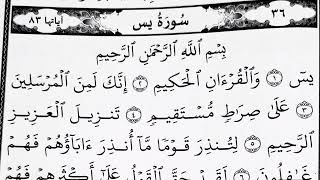 ٣٦ سُورَةُ يسٓ آياتها ٨٣
بِسْمِ اللَّهِ الرَّحْمَٰنِ الرَّحِيمِ
يسٓ ١ وَالْقُرْءَانِ الْحَكِيمِ ٢ إِنَّكَ لَمِنَ الْمُرْسَلِينَ
٣ عَلَىٰ صِرَاطٍ مُّسْتَقِيمٍ ٤ تَنزِيلَ الْعَزِيزِ
الرَّحِيمِ ٥ لِتُنذِرَ قَوْمًا مَّا أُنذِرَ ءَابَاؤُهُمْ فَهُمْ
غَٰفِلُونَ ٦ لَقَدْ حَقَّ الْقَوْلُ عَلَىٰ أَكْثَرِهِمْ فَهُمْ